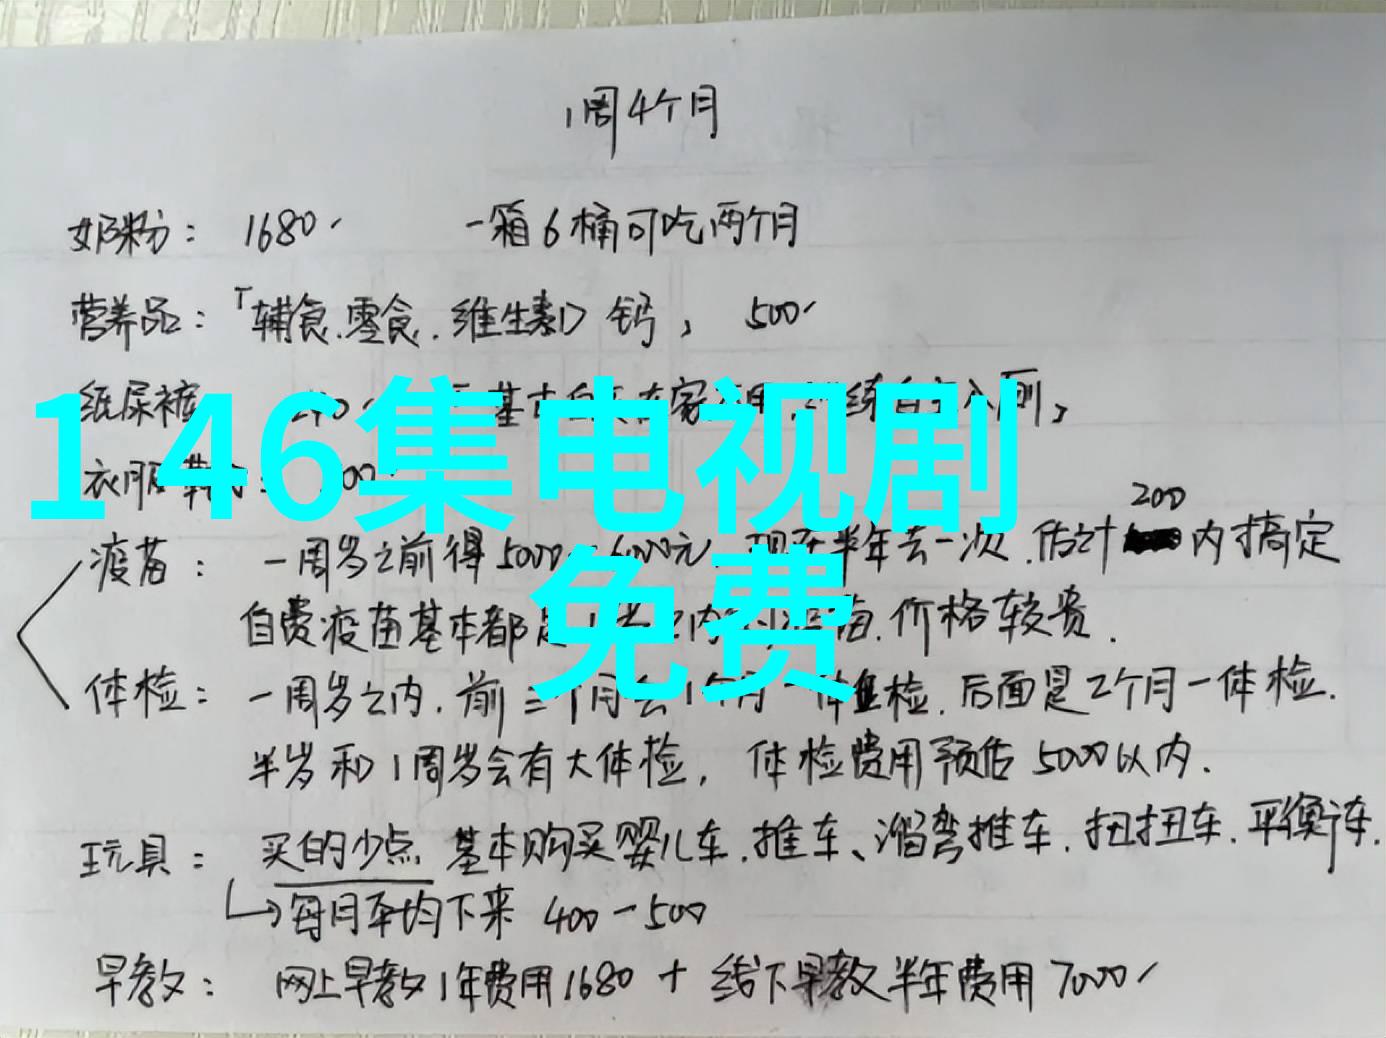 1周4个月
奶粉： 1680 一箱6桶可吃两个月
营养品：「辅食.零食.维生素D 钙， 500
纸尿裤
146集电视剧
衣服
免费
200
疫苗： 一周岁之前得5000 6000元, 现在半年去一次.估计 内搞定
自费疫苗基本都是 价格较贵.
体检： 一周岁之内.前三个月会1个月一体检.后面是2个月一体检.
半岁和1周岁会有大体检, 体检费用预估5000以内.
玩具： 买的少点 基本购买婴儿车.推车、溜弯推车.扭扭车.平衡车.
每月平均下来 400-500
早教： 网上早教1年费用1680 + 线下早教半年费用7000